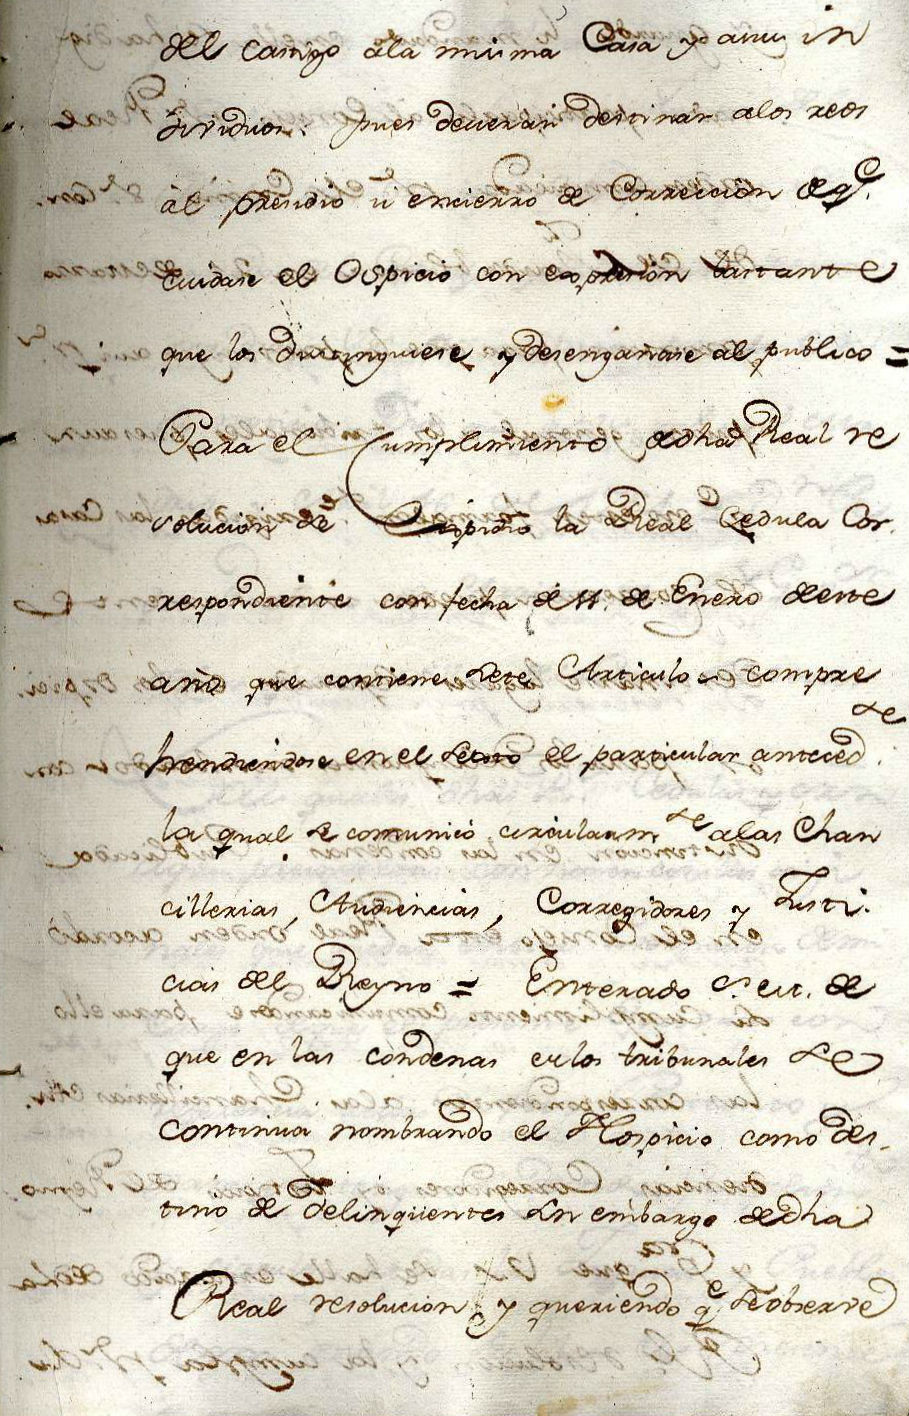 del castigo ala misma Casa y asus in
dividuos: pues deveran destinar alos reos
àl presidio ù encierro de Correccion de qe.
cuidase el Ospicio con expresion bastante
que los distinguiese y desengañase al publico =
Para el Cumplimiento dedha Real re
solucion se expidio la Real Cedula Cor.
respondiente con fecha de 11. de Enero deeste
año que contiene siete Articulos compre
hendiendose en el sexto el particular anteced.te
la qual se comunicó circularm.te alas Chan
cillerias, Audiencias, Corregidores y Justi.
cias del Reyno = Enterado S. M. de
que en las condenas de los tribunales se
continua nombrando el Hospicio como des-
tino de delinqüentes sin embargo dedha
Real resolucion, y queriendo qe se observe